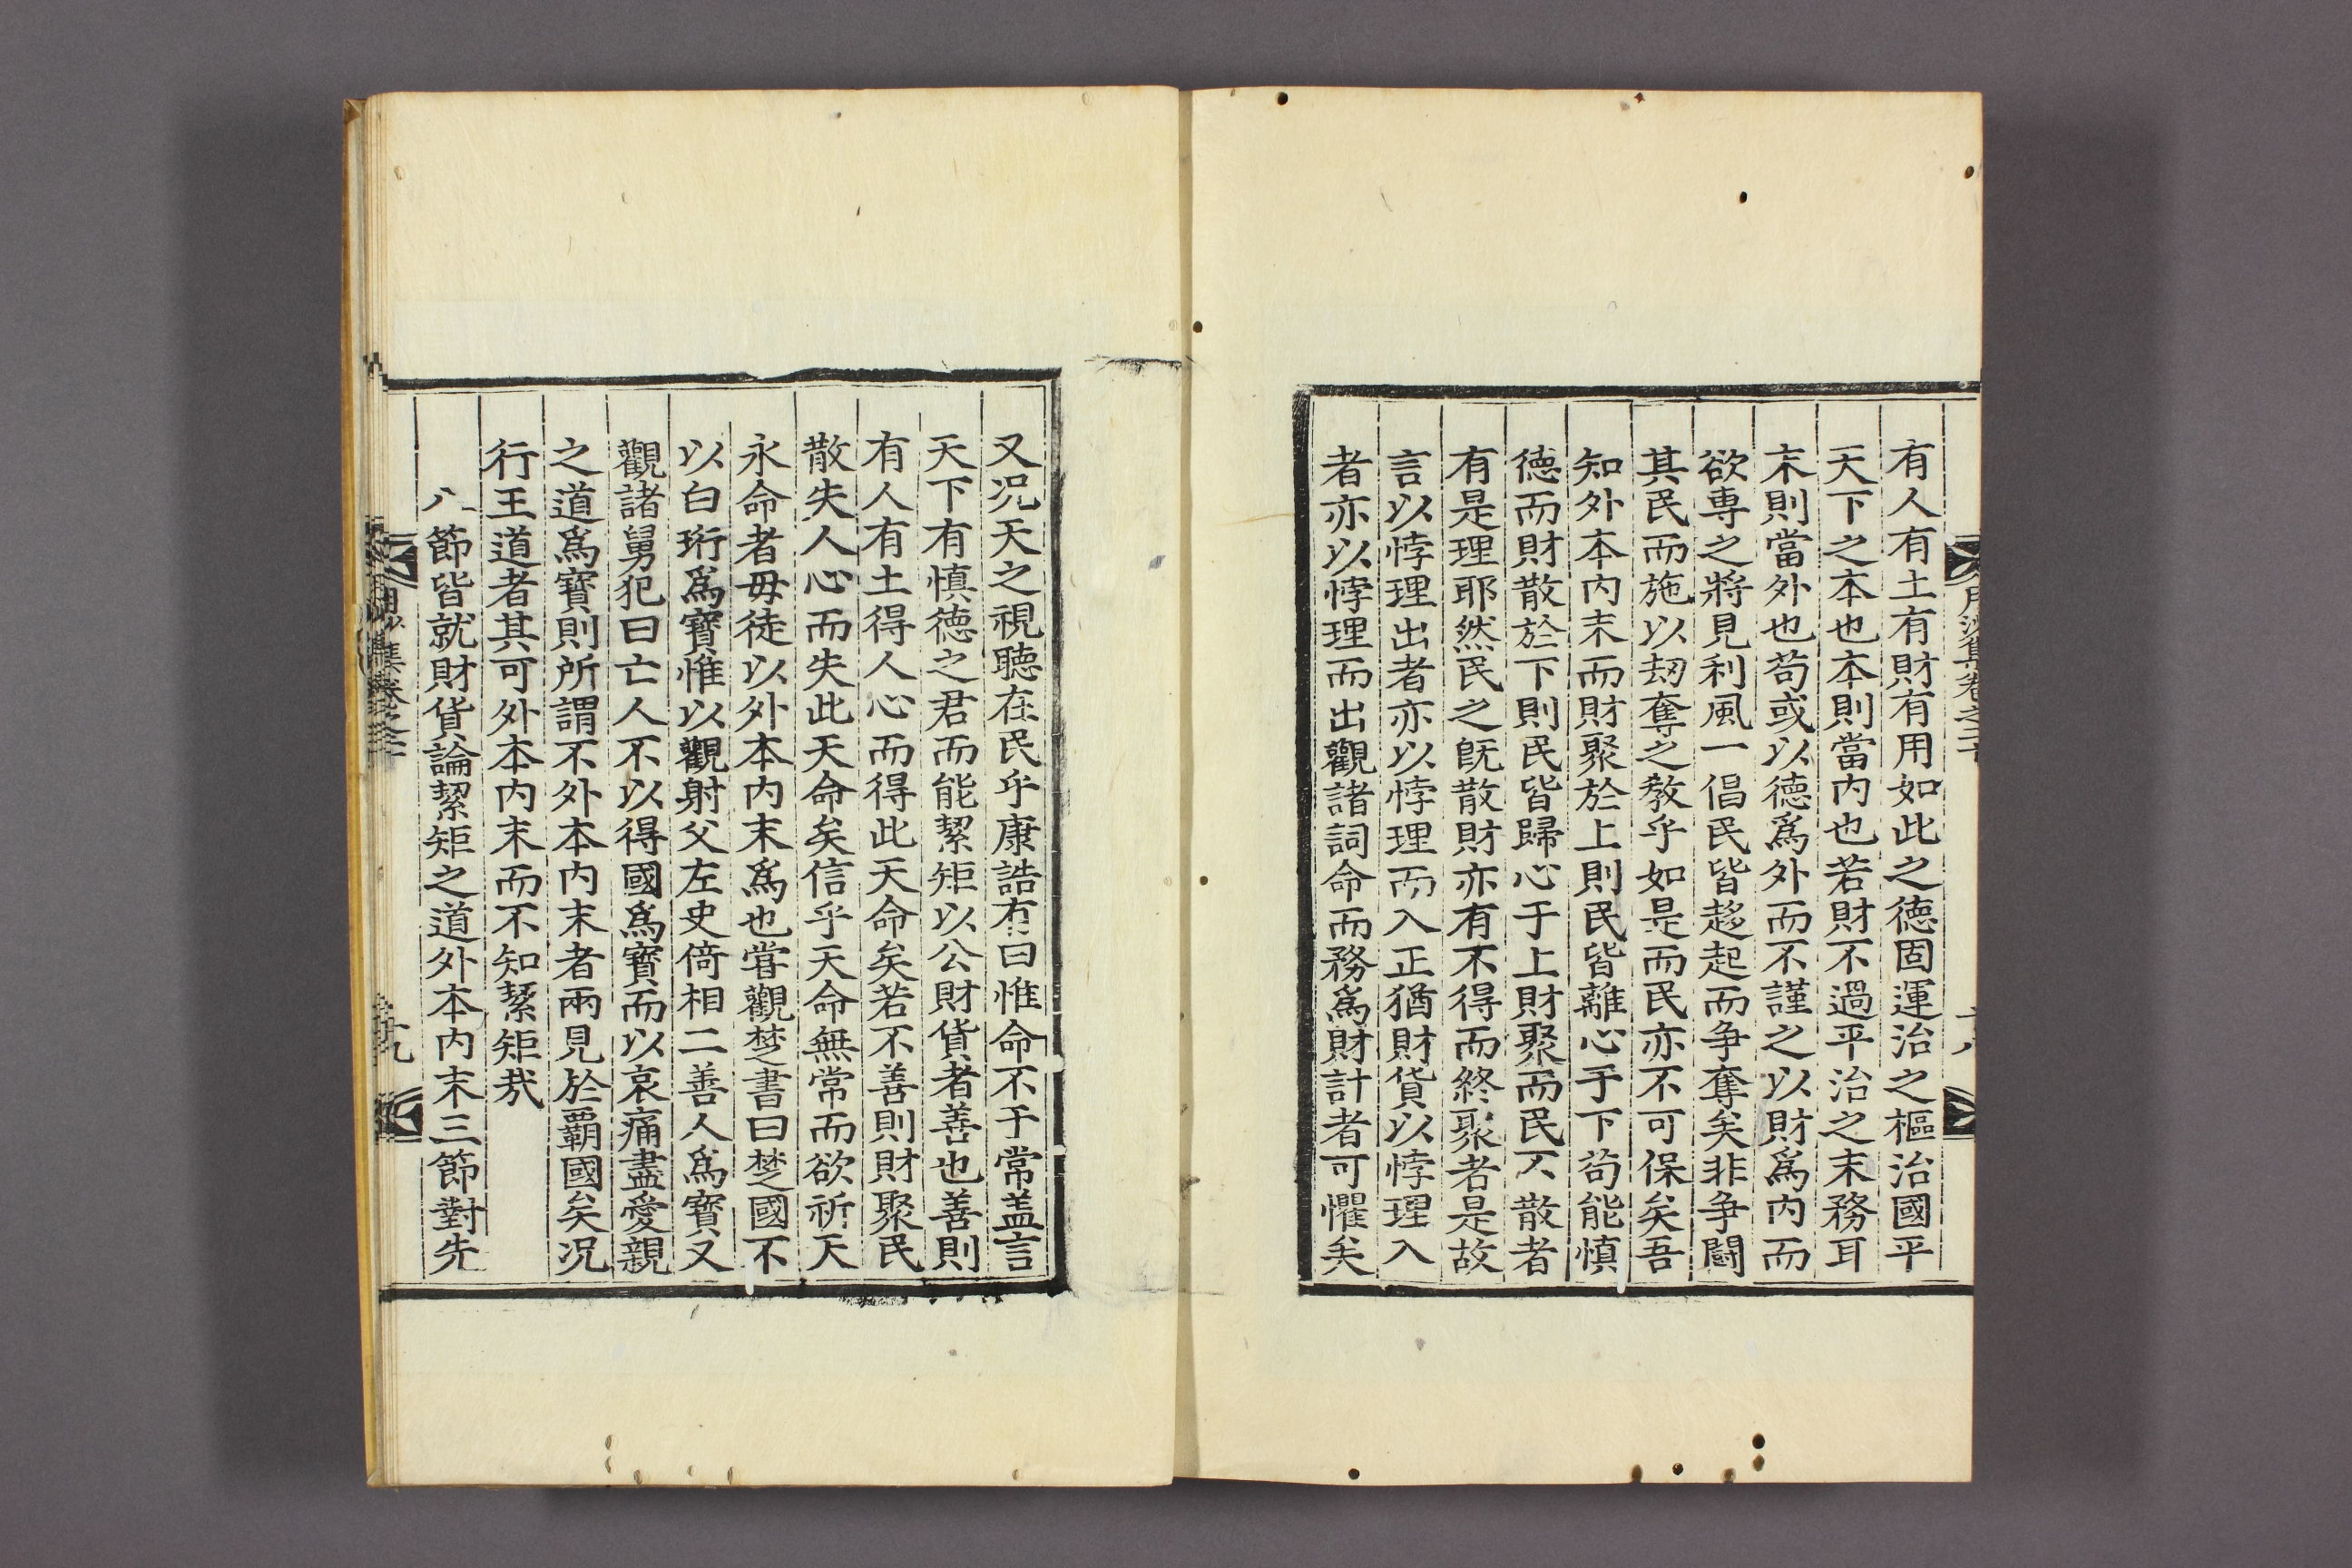 有人有土有財有用如此之德固運治之樞治國平
天下之本也本則當内也若財不過平治之末務耳
末則當外也苟或以德爲外而不謹之以財爲内而
欲専之將見利風一倡民皆趍起而争奪矣非争鬪
其民而施以刼奪之敎乎如是而民亦不可保矣吾
知外本内末而財聚於上則民皆離心于下苟能慎
德而財散於下則民皆歸心于上財聚而民不散者
有是理耶然民之旣散財亦有不得而終聚者是故
言以悖理出者亦以悖理而入正猶財貨以悖理入
者亦以悖理而出觀諸詞命而務爲財計者可懼矣
又况天之視聽在民乎康誥有曰惟命不于常盖言
天下有慎德之君而能絜矩以公財貨者善也善則
有人有土得人心而得此天命矣若不善則財聚民
散失人心而失此天命矣信乎天命無常而欲祈天
永命者毋徒以外本内末爲也甞觀楚書曰楚國不
以白珩爲寶惟以觀射父左史倚相二善人爲寶又
觀諸舅犯曰亡人不以得國爲寶而以哀痛盡愛親
之道爲寶則所謂不外本内末者兩見於覇國矣况
行王道者其可外本内末而不知絜矩㢤
八節皆就財貨論絜矩之道外本内末三節對先